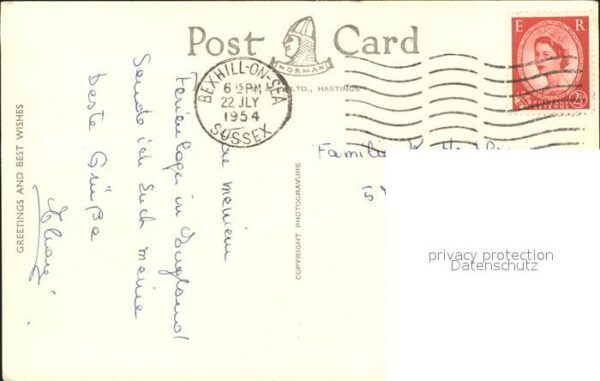 Post Card
NORMAN
LTD., HASTINGS
E R
2½
BEXHILL-ON-SEA
6 15 PM
22 JLY
1954
SUSSEX
Familie
GREETINGS AND BEST WISHES
COPYRIGHT PHOTOGRAVURE
meinem
Ferienlager in England
Sende ich Euch meine
beste Grüße
privacy protection
Datenschutz